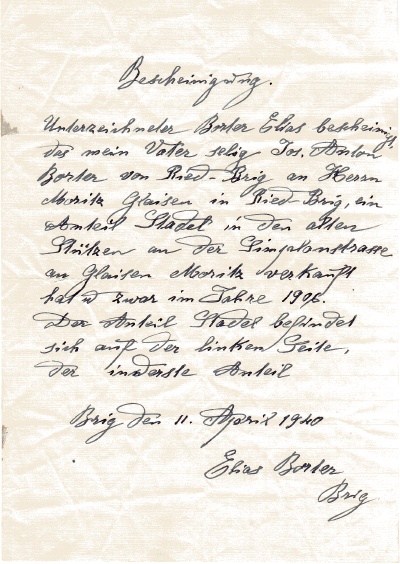 Bescheinigung.
Unterzeichneter Borter Elias bescheinigt,
das mein Vater selig Jos. Anton
Borter von Ried-Brig an Herrn
Moritz Glaisen in Ried-Brig, ein
Anteil Stadel in den alten
Stützen an der Simplonstrasse
an Glaisen Moritz verkauft
hat u zwar im Jahre 1906.
Der Anteil Stadel befindet
sich auf der linken Seite,
der inderste Anteil
Brig den 11. April 1940
Elias Borter
Brig